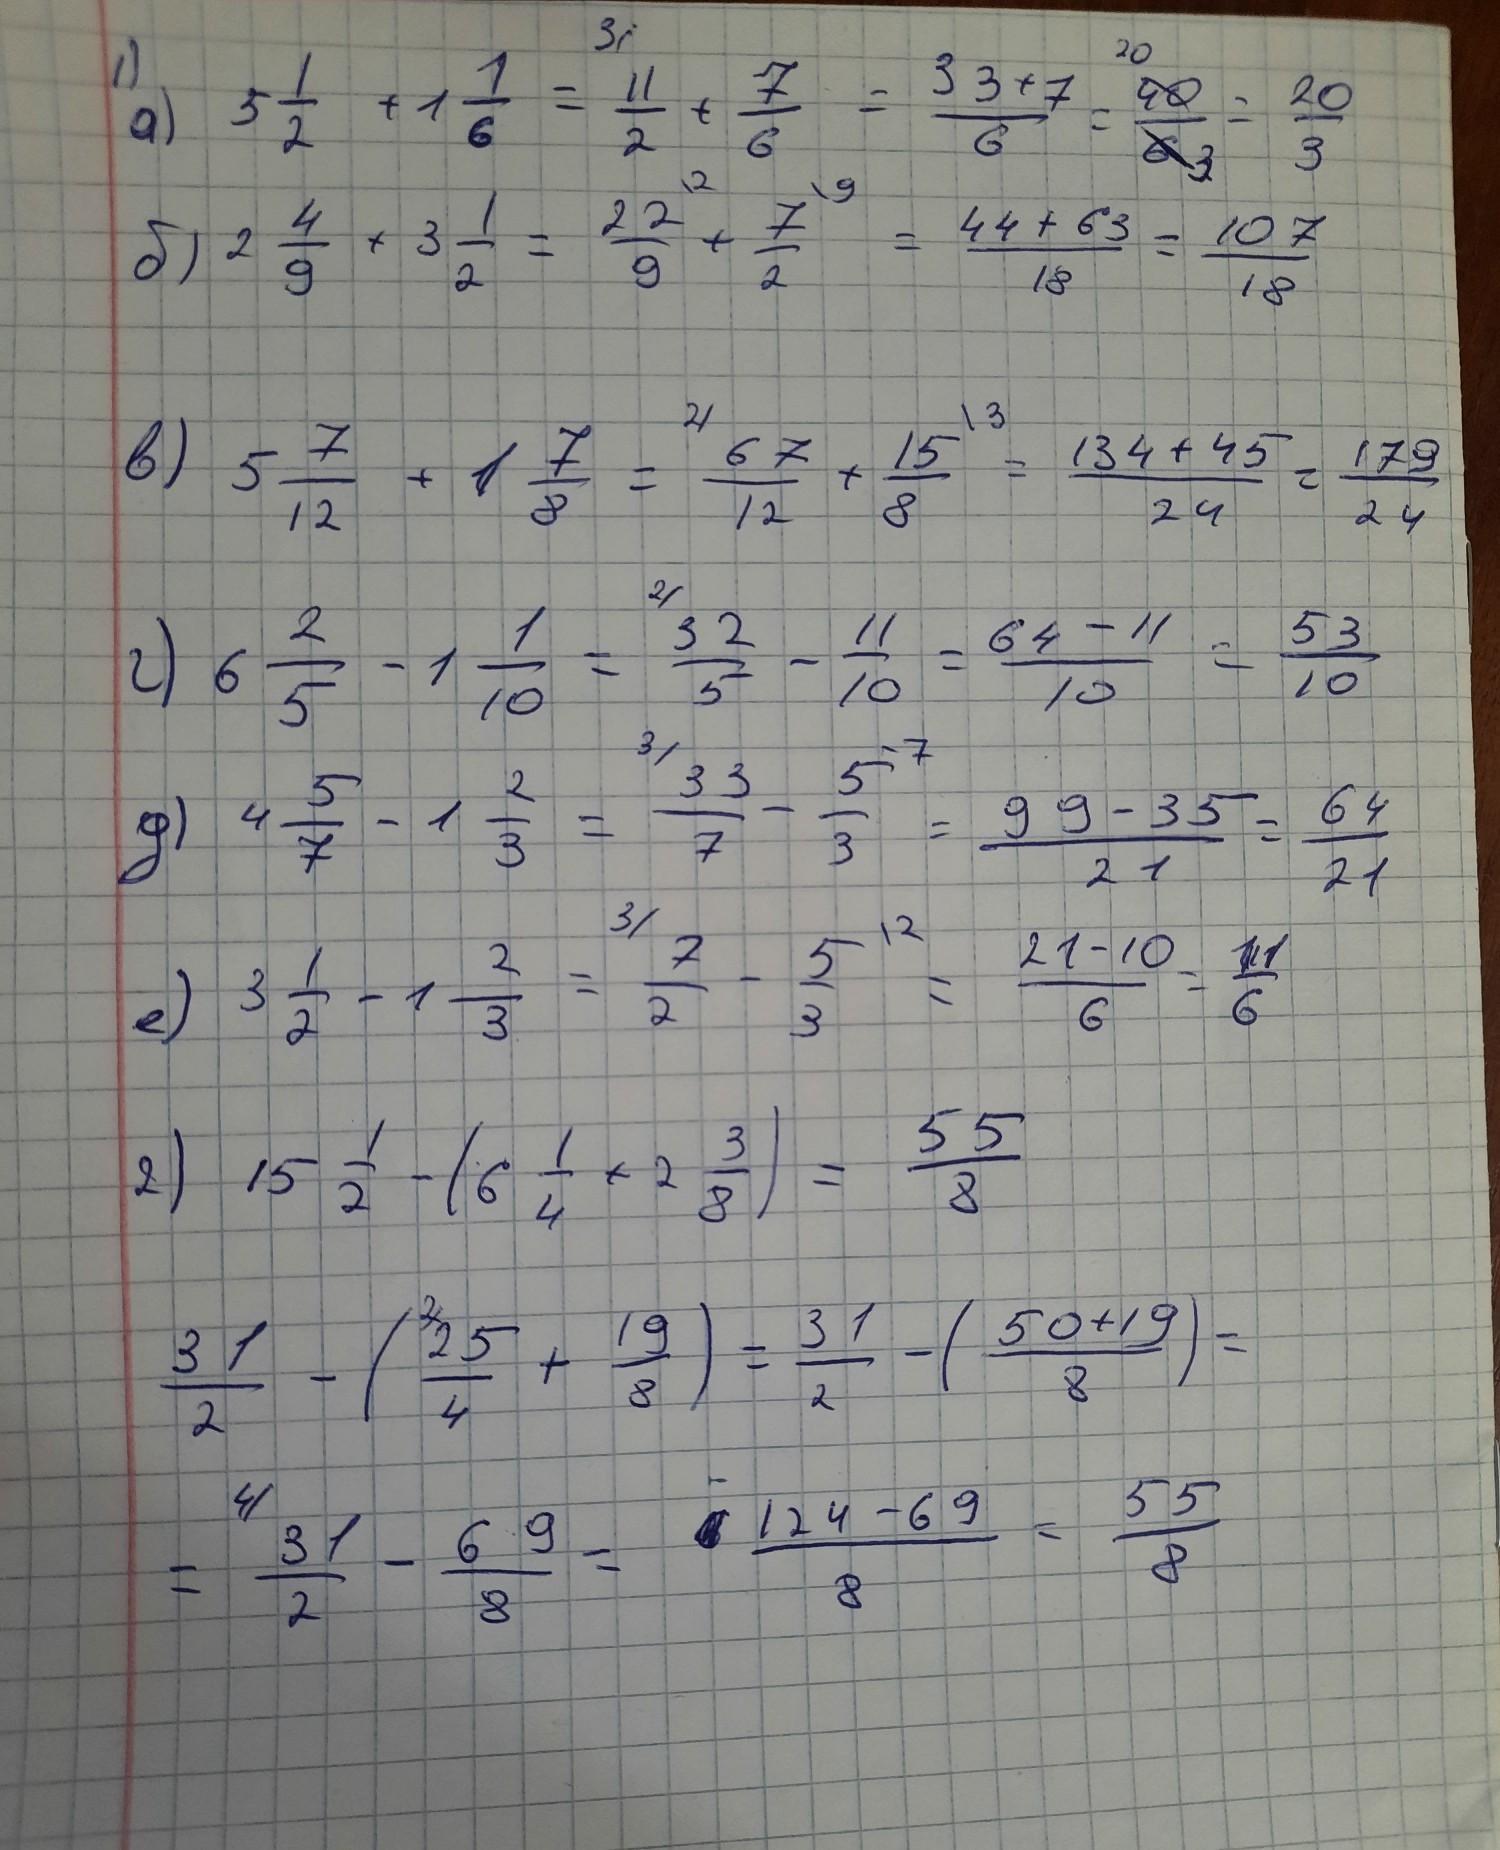 1)
а) 5 1/2 + 1 1/6 = 3/ 11/2 + 7/6 = (33+7)/6 = 20 40/6 3 = 20/3
б) 2 4/9 + 3 1/2 = 22/9 \2 + 7/2 \9 = (44+63)/18 = 107/18
в) 5 7/12 + 1 7/8 = 2/ 67/12 + 15/8 \3 = (134+45)/24 = 179/24
г) 6 2/5 - 1 1/10 = 2/ 32/5 - 11/10 = (64-11)/10 = 53/10
д) 4 5/7 - 1 2/3 = 3/ 33/7 - 5/3 \7 = (99-35)/21 = 64/21
е) 3 1/2 - 1 2/3 = 3/ 7/2 - 5/3 \2 = (21-10)/6 = 11/6
2) 15 1/2 - (6 1/4 + 2 3/8) = 55/8
31/2 - (2/ 25/4 + 19/8) = 31/2 - ((50+19)/8) =
= 4/ 31/2 - 69/8 = (124-69)/8 = 55/8